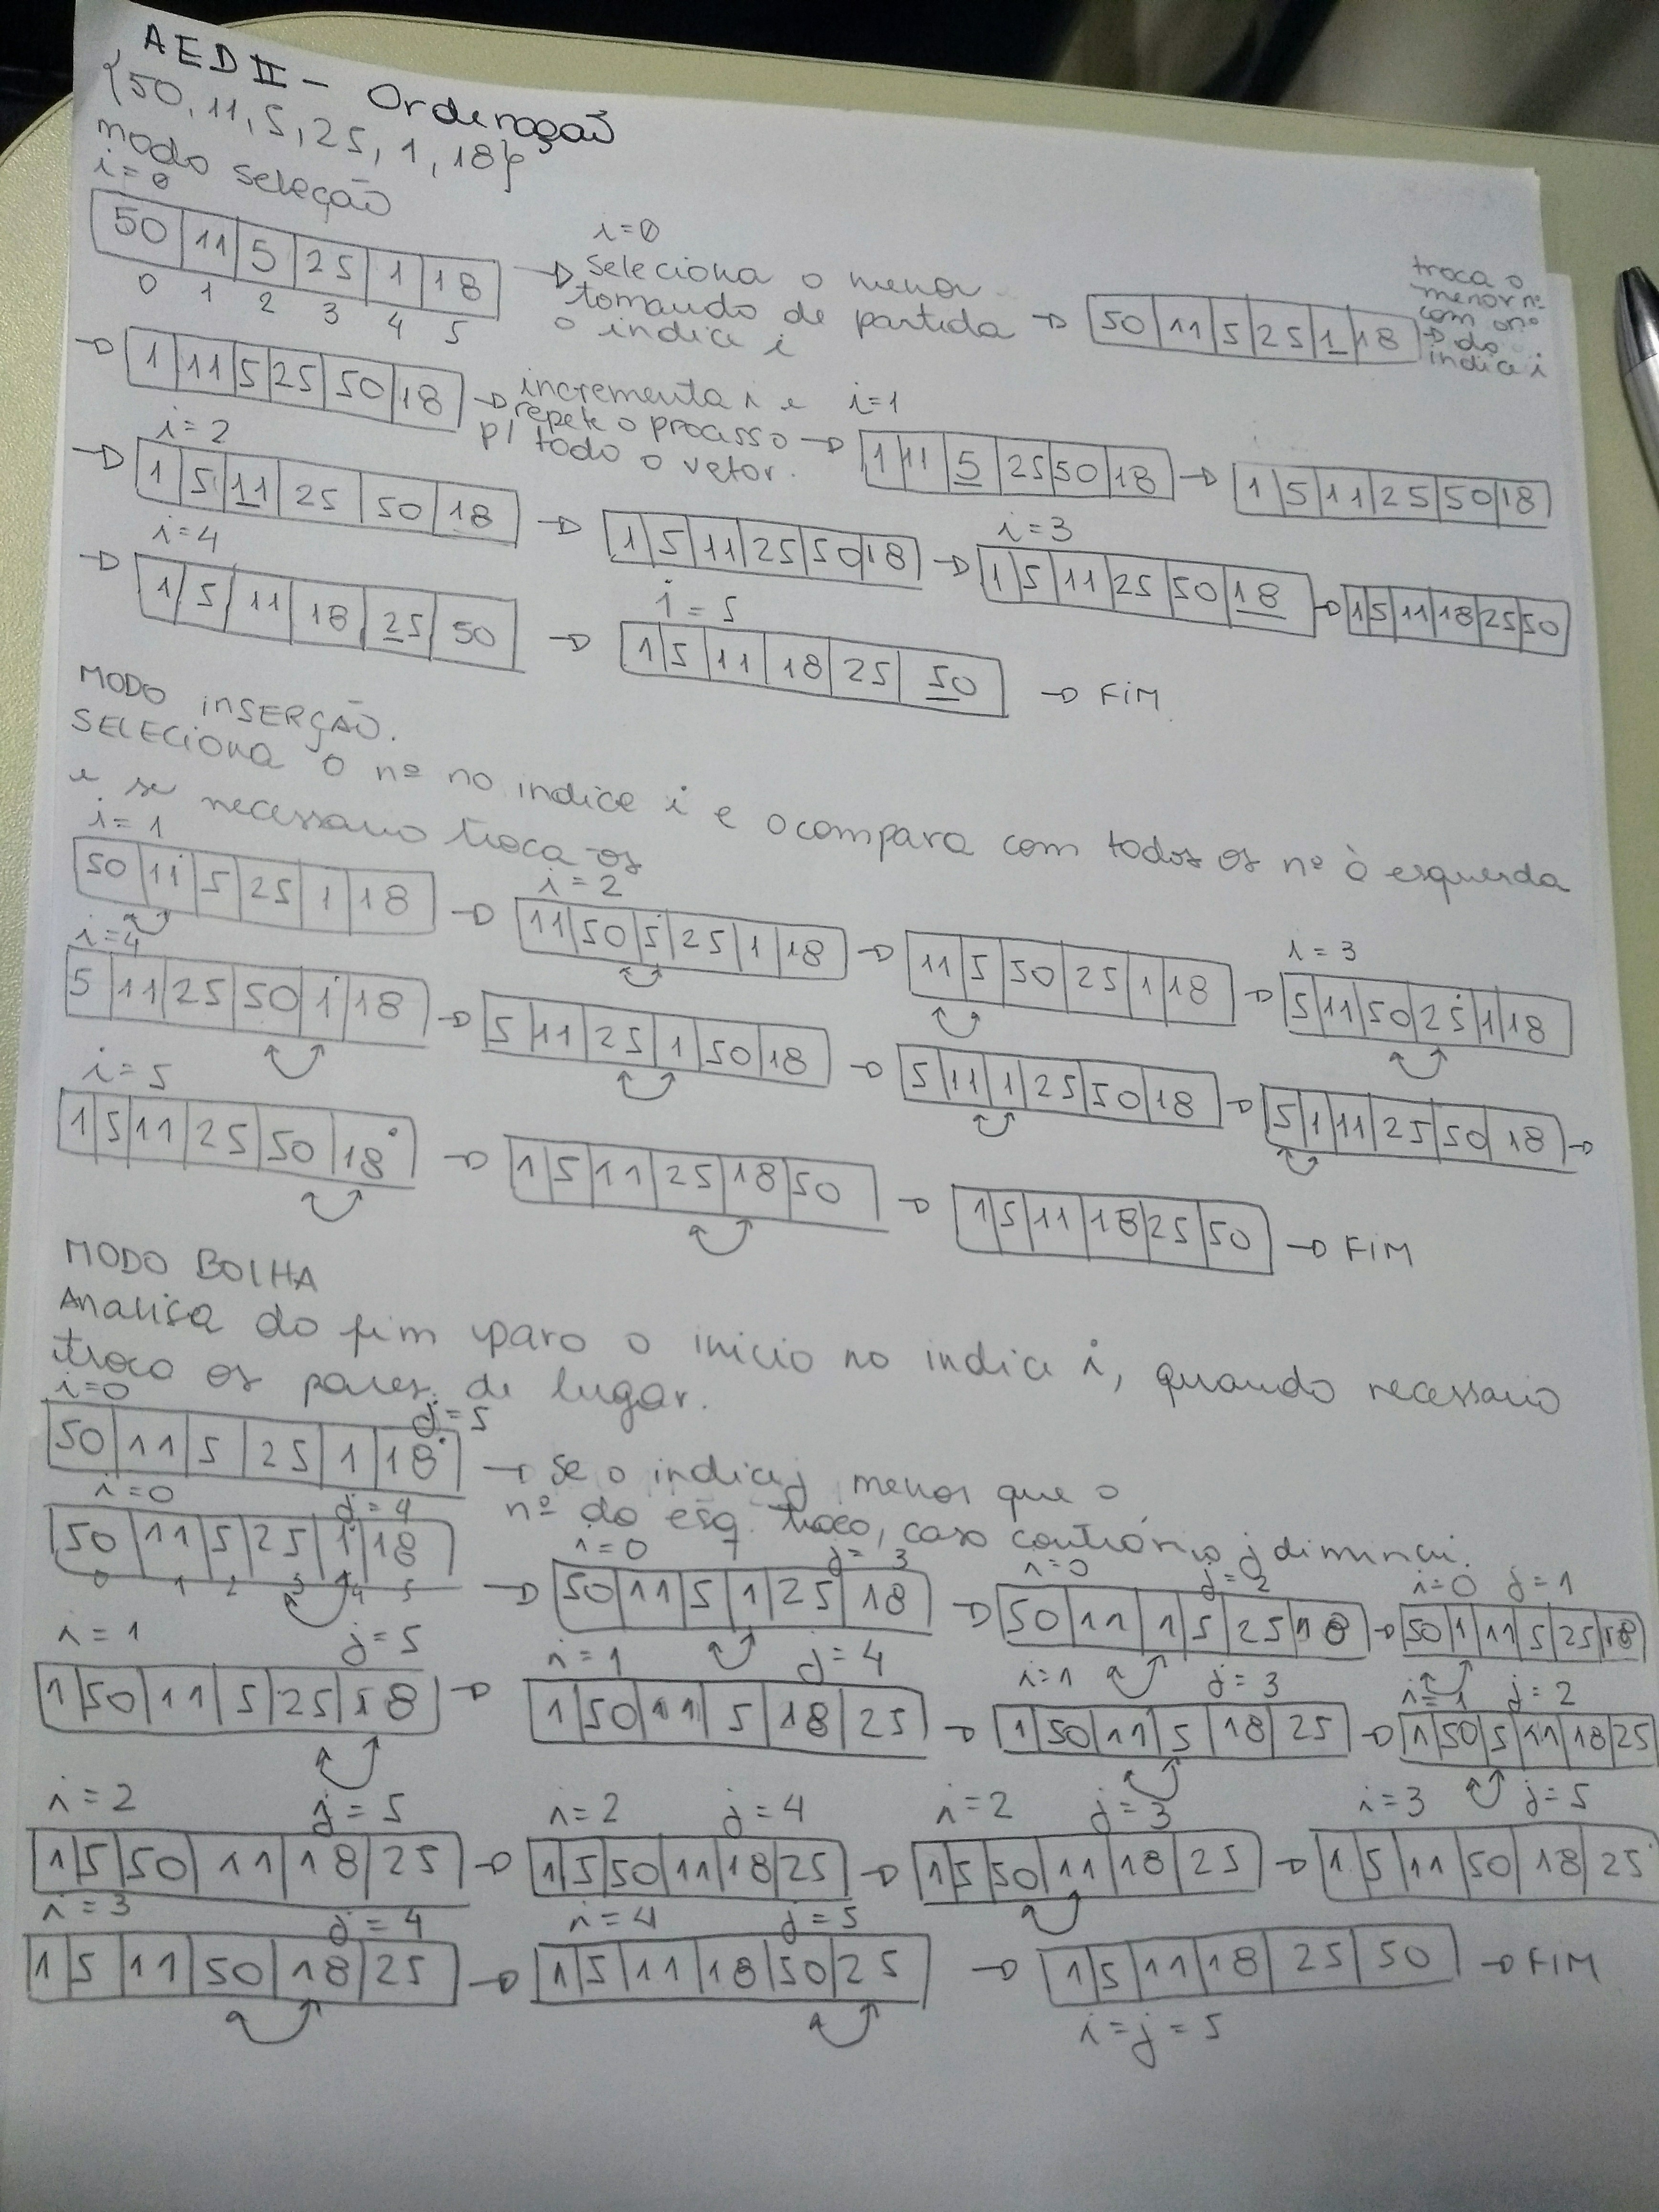 AED II - Ordenação
{50, 11, 5, 25, 1, 18}
modo seleção
i=0
50 11 5 25 1 18
0 1 2 3 4 5
i=0
→ Seleciona o menor
tomando de partida
o indice i
→ 50 11 5 25 1 18
troca o
menor nº
com o nº
→ do
indice i
→ 1 11 5 25 50 18
→ incrementa i e
repete o processo
p/ todo o vetor.
i=1
→ 1 11 5 25 50 18 → 1 5 11 25 50 18
i=2
→ 1 5 11 25 50 18 → 1 5 11 25 50 18
i=3
→ 1 5 11 25 50 18 → 1 5 11 18 25 50
i=4
→ 1 5 11 18 25 50
i=5
→ 1 5 11 18 25 50 → FIM
MODO INSERÇÃO.
SELECIONA O nº no indice i e o compara com todos os nº à esquerda
e se necessario troca-os
i=1
50 11 5 25 1 18
i=2
→ 11 50 5 25 1 18 → 11 5 50 25 1 18
i=3
→ 5 11 50 25 1 18
i=4
5 11 25 50 1 18 → 5 11 25 1 50 18 → 5 11 1 25 50 18 → 5 1 11 25 50 18 →
i=5
1 5 11 25 50 18 → 1 5 11 25 18 50 → 1 5 11 18 25 50 → FIM
MODO BOLHA
Analisa do fim para o inicio no indice i, quando necessario
troca os pares de lugar.
i=0 j=5
50 11 5 25 1 18
→ Se o indice j menor que o
nº do esq. troco, caso contrário j diminui.
i=0 j=4
50 11 5 25 1 18
0 1 2 3 4 5
i=0 j=3
→ 50 11 5 1 25 18
i=0 j=2
→ 50 11 1 5 25 18
i=0 j=1
→ 50 1 11 5 25 18
i=1 j=5
1 50 11 5 25 18
i=1 j=4
→ 1 50 11 5 18 25
i=1 j=3
→ 1 50 11 5 18 25
i=1 j=2
→ 1 50 5 11 18 25
i=2 j=5
1 5 50 11 18 25
i=2 j=4
→ 1 5 50 11 18 25
i=2 j=3
→ 1 5 50 11 18 25
i=3 j=5
→ 1 5 11 50 18 25
i=3 j=4
1 5 11 50 18 25
i=4 j=5
→ 1 5 11 18 50 25
→ 1 5 11 18 25 50 → FIM
i=j=5